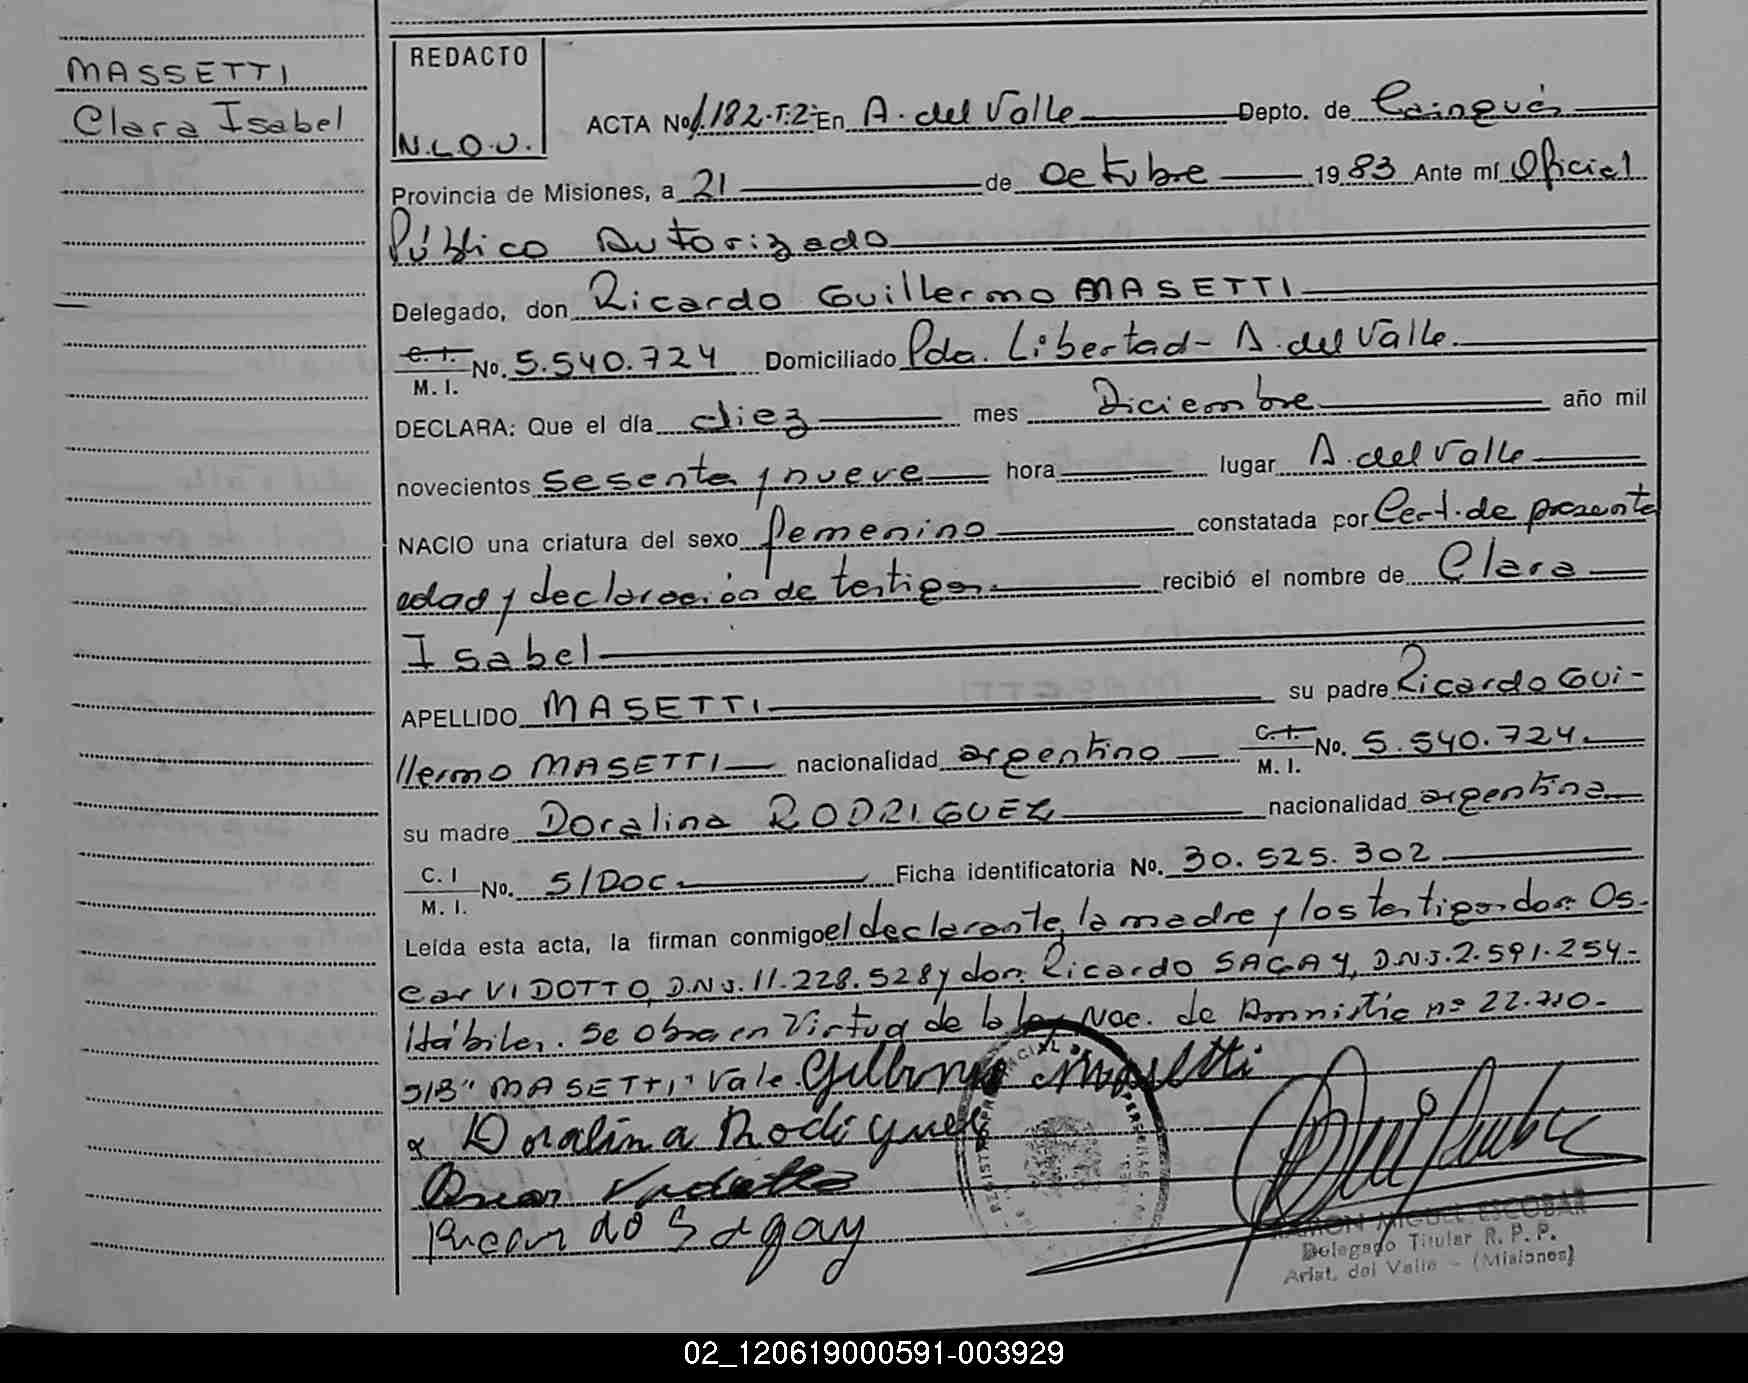 MASSETTI
Clara Isabel
REDACTO
N.L.O.U.
ACTA No. 182-T.2- En A. del Valle Depto. de Cainguás
Provincia de Misiones, a 21 de octubre 1983 Ante mí Oficial
Público Autorizado
Delegado, don Ricardo Guillermo MASETTI
C. I. M. I. No. 5.540.724 Domiciliado Pda. Libertad- A. del Valle.
DECLARA: Que el día diez mes Diciembre año mil
novecientos sesenta y nueve hora lugar A. del Valle
NACIO una criatura del sexo femenino constatada por Cert. de presunta
edad y declaración de testigos recibió el nombre de Clara
Isabel
APELLIDO MASETTI su padre Ricardo Gui-
llermo MASETTI nacionalidad argentino C. I. M. I. No. 5.540.724.
su madre Doralina RODRIGUEZ nacionalidad argentina
C. I M. I. No. S/Doc. Ficha identificatoria No. 30.525.302
Leída esta acta, la firman conmigo el declarante, la madre y los testigos don Os-
car VIDOTTO, D.N.I. 11.228.528 y don Ricardo SAGAY, D.N.I. 2.591.254-
Hábiles. Se obra en Virtud de la ley Nac. de Amnistía nº 22.710-
S/B "MASETTI" Vale. Gillermo Masetti
Doralina Rodiguez
Oscar Vidotto
Ricardo Sagay
RAMON MIGUEL ESCOBAR
Delegado Titular R. P. P.
Arist. del Valle - (Misiones)
02_120619000591-003929